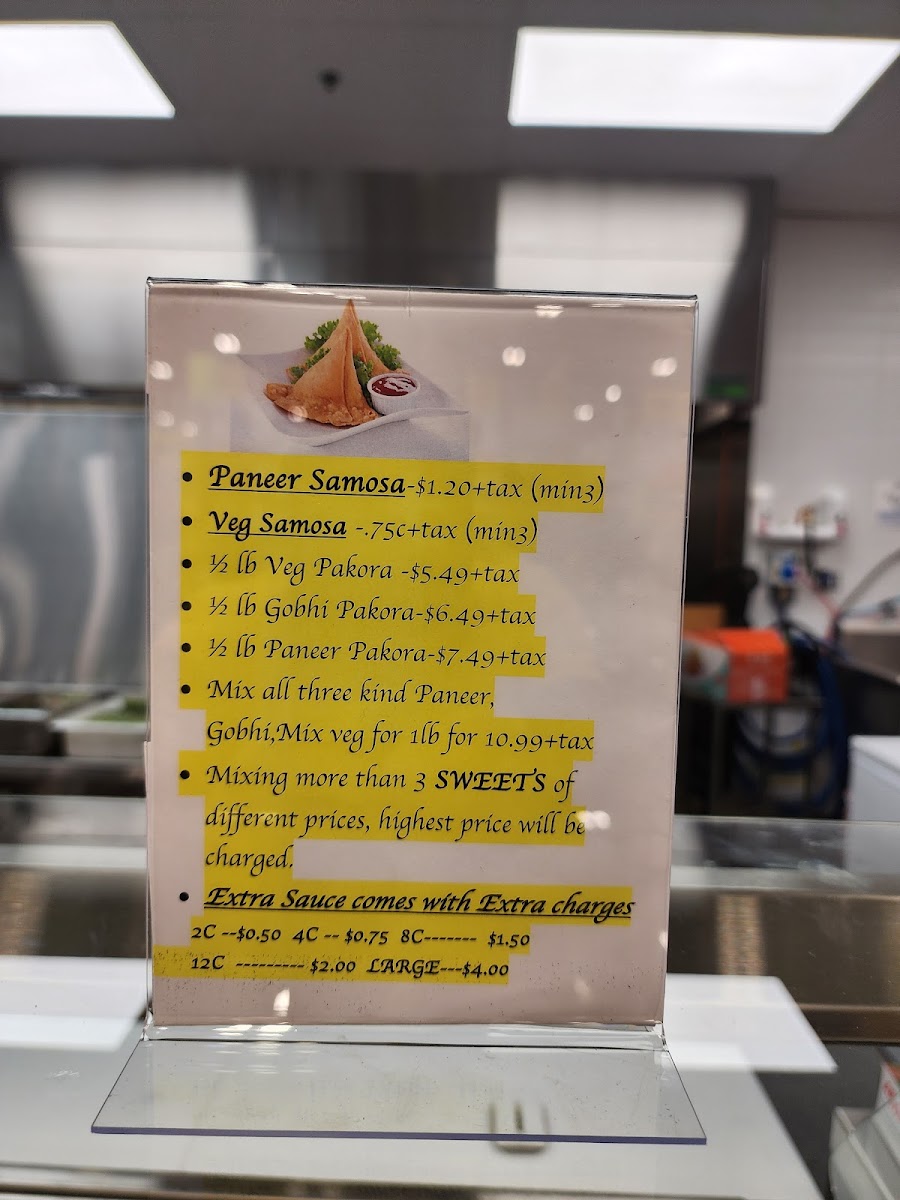 • Paneer Samosa-$1.20+tax (min3)
• Veg Samosa -.75c+tax (min3)
• ½ lb Veg Pakora -$5.49+tax
• ½ lb Gobhi Pakora-$6.49+tax
• ½ lb Paneer Pakora-$7.49+tax
• Mix all three kind Paneer,
Gobhi,Mix veg for 1lb for 10.99+tax
• Mixing more than 3 SWEETS of
different prices, highest price will be
charged.
• Extra Sauce comes with Extra charges
2C --$0.50 4C -- $0.75 8C------- $1.50
12C --------- $2.00 LARGE---$4.00